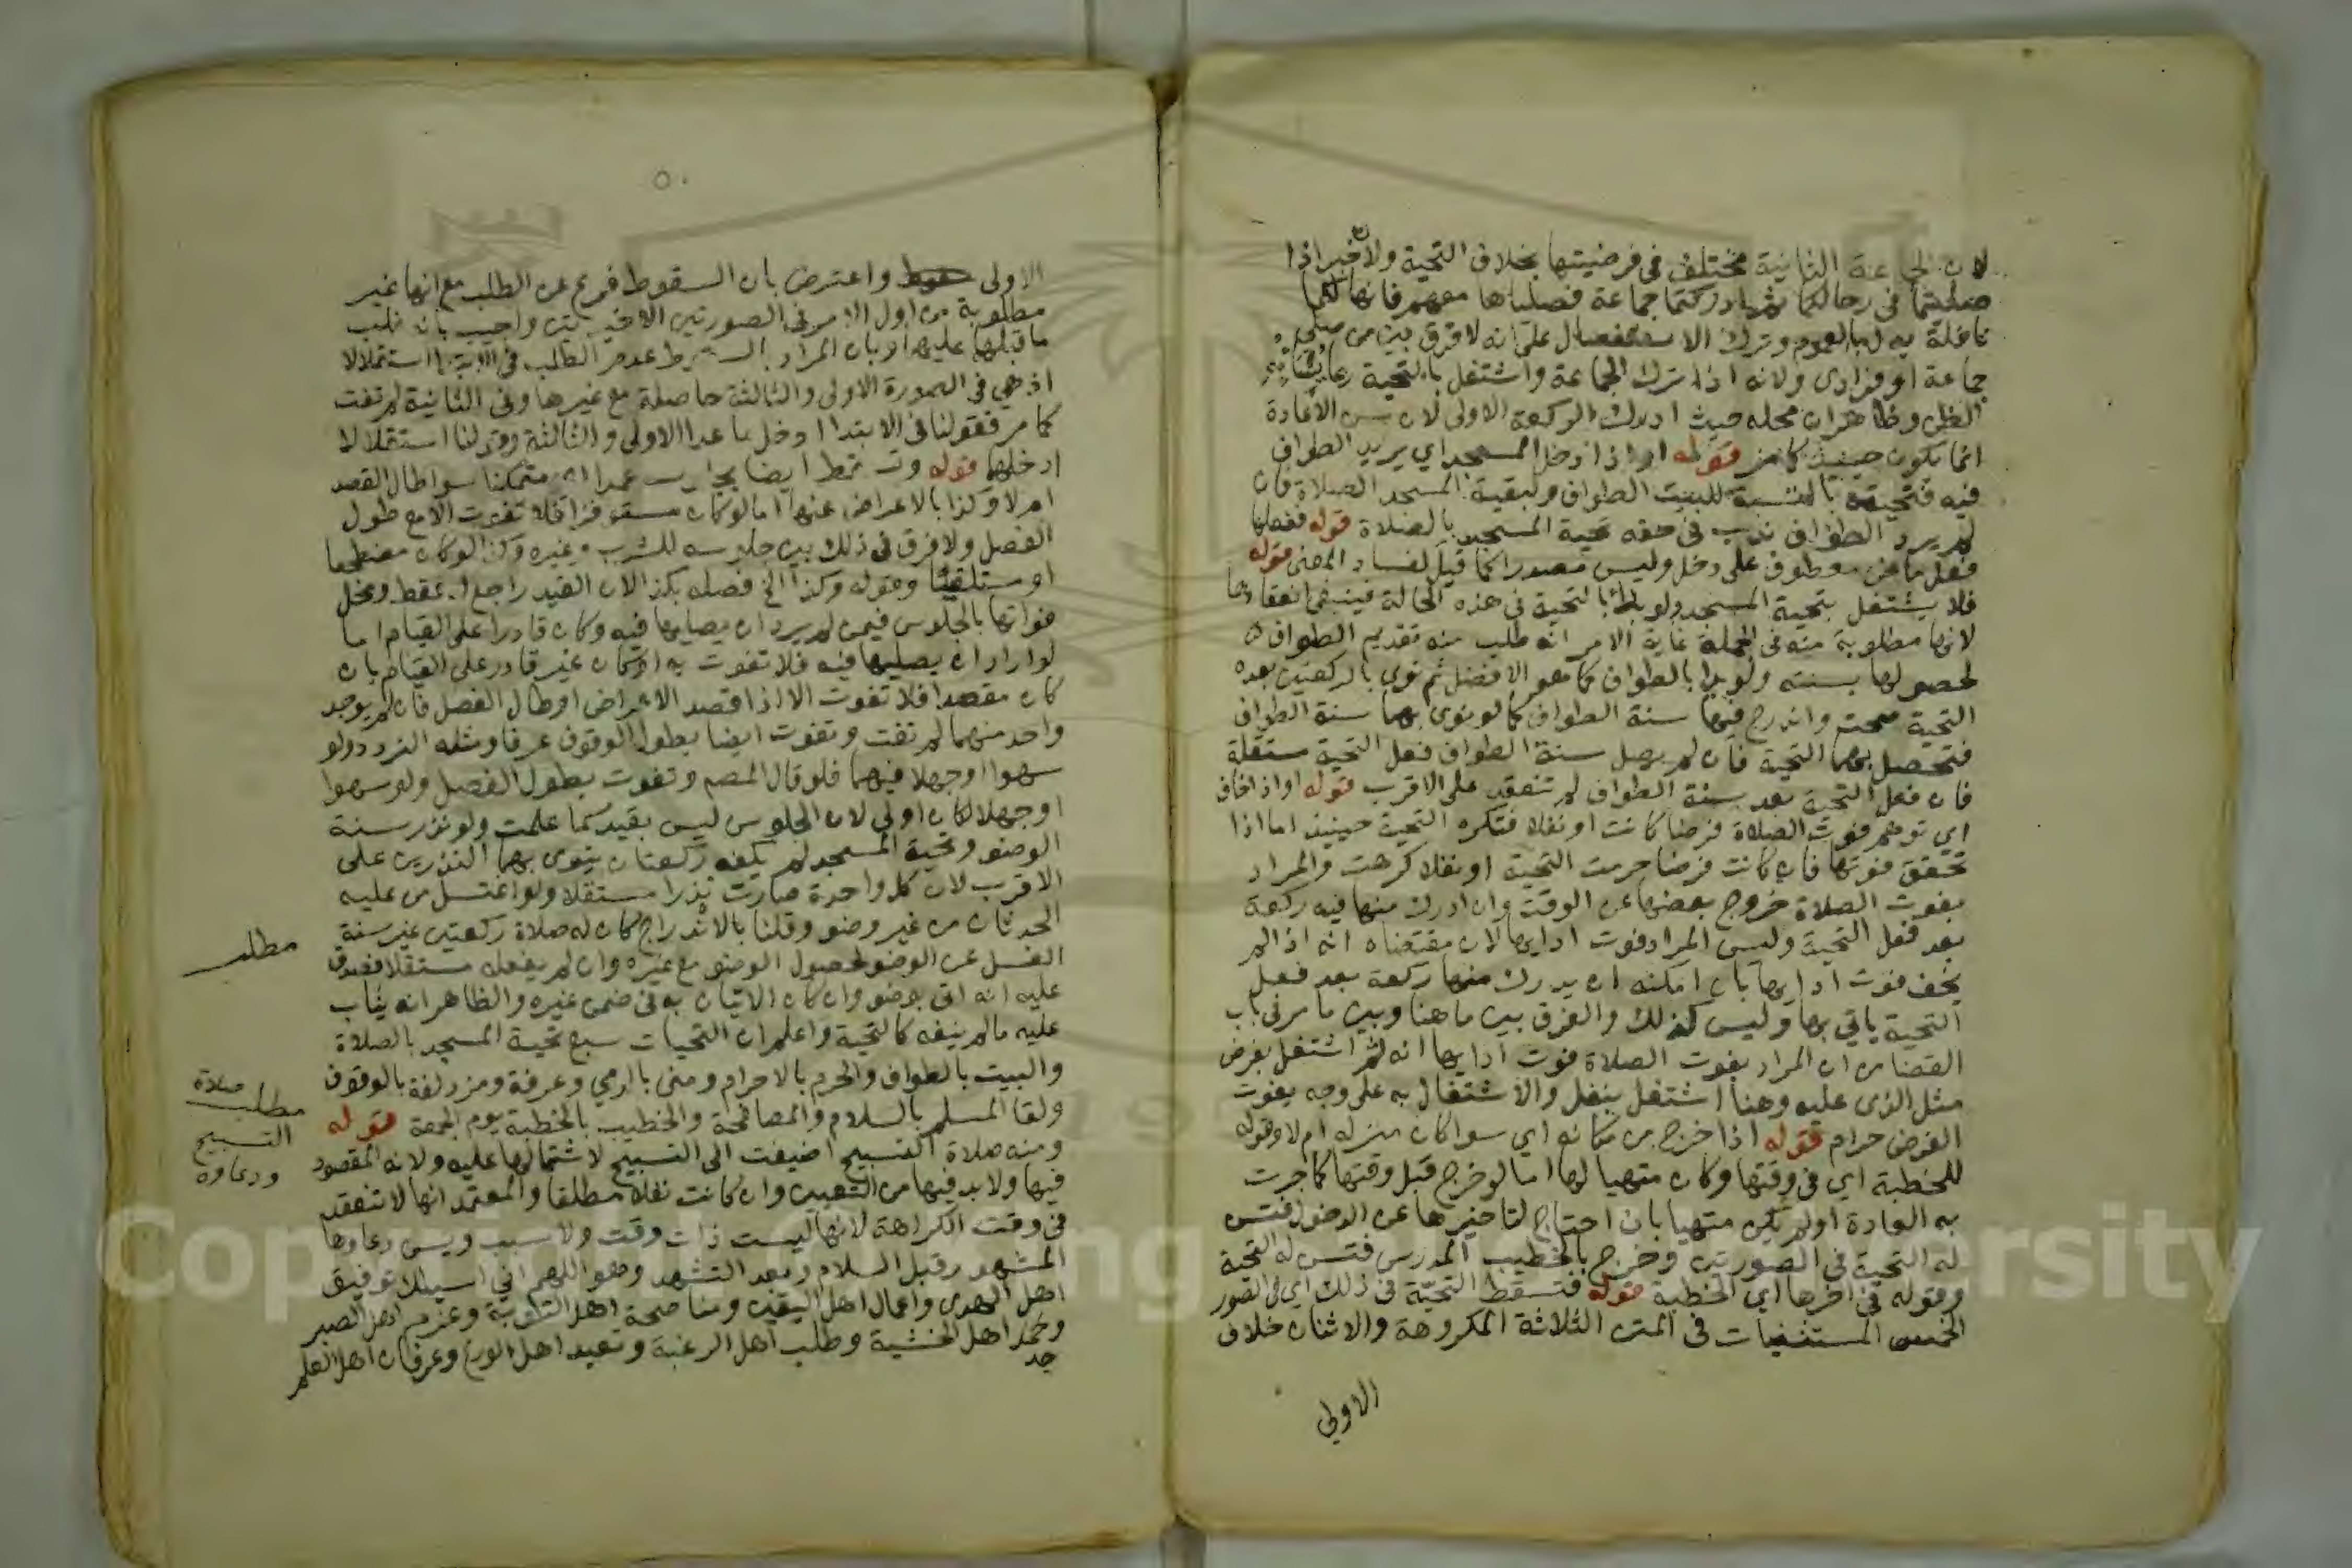 لان الجماعة الثانية مختلف في فرضيتها بخلاف التحية ولخبر اذا
صليتما في رحالكما ثم ادركتما جماعة فصلياها معهم فانها لكما
نافلة يدل بالعموم وترك الاستفصال على انه لا فرق بين من صلى
جماعة او فرادى ولانه اذا ترك الجماعة واشتغل بالتحية ربما
الظن وظاهر ان محله حيث ادرك الركعة الاولى لان سن الاعادة
انما يكون حينئذ كما مر قوله او اذا دخل المسجد اي يريد الطواف
فيه فتحيته بالنسبة للبيت الطواف ولبقية المسجد الصلاة فان
لم يرد الطواف ندب في حقه تحية المسجد بالصلاة قوله
فعل ماض معطوف على دخل وليس مصدرا كما قيل لفساد المعنى قوله
فلا يشتغل بتحية المسجد ولو بدا بالتحية في هذه الحالة فينبغي انعقادها
لانها مطلوبة منه في الجملة غاية الامر انه طلب منه تقديم الطواف
لحصولها بسنته ولو بدا بالطواف كما هو الافضل ثم نوى بالركعتين بعده
التحية صحت واندرج فيها سنة الطواف كما لو نوى بهما سنة الطواف
فتحصل بهما التحية فان لم يصل سنة الطواف فعل التحية مستقلة
فان فعل التحية بعد سنة الطواف لم تنعقد على الاقرب قوله او اذا خاف
اي توهم فوت الصلاة فرضا كانت او نفلا فتكره التحية حينئذ اما اذا
تحقق فوتها فان كانت فرضا حرمت التحية او نفلا كرهت والمراد
بفوت الصلاة خروج بعضها عن الوقت وان ادرك منها فيه ركعة
بعد فعل التحية وليس المراد فوت ادايها لان مقتضاه انه اذا لم
يخف فوت ادايها بان امكنه ان يدرك منها ركعة بعد فعل
التحية ياتي بها وليس كذلك والفرق بين ما هنا وبين ما مر في باب
القضا من ان المراد بفوت الصلاة فوت ادايها انه ثم اشتغل بفرض
مثل الذي عليه وهنا اشتغل بنفل والاشتغال به على وجه يفوت
الفرض حرام قوله اذا خرج من مكانه اي سوا كان منزله ام لا وقوله
للخطبة اي في وقتها وكان متهيا لها اما لو خرج قبل وقتها كما جرت
به العادة او لم يكن متهيا بان احتاج لتاخيرها عن الدخول فتسن
له التحية في الصورتين وخرج بالخطيب المدرس فتسن له التحية
وقوله في اخرها اي الخطبة قوله فتسقط التحية في ذلك اي في الصور
الخمس المستثنيات في المتن الثلاثة المكروهة والاثنان خلاف
الاولى
٥٠
الاولى واعترض بان السقوط فرع عن الطلب مع انها غير
مطلوبة من اول الامر في الصورتين الاخيرتين واجيب بانه غلب
ما قبلها عليها او بان المراد بالسقوط عدم الطلب في الابتدا استقلالا
اذ هي في الصورة الاولى والثالثة حاصلة مع غيرها وفي الثانية لم تفت
كما مر فقولنا في الابتدا ادخل ما عدا الاولى والثالثة وقولنا استقلالا
ادخلهما قوله وتسقط ايضا بجلوسه عمدا اي متمكنا سوا طال الفصل
ام لا وكذا بالاعراض عنها اما لو كان مستوفزا فلا تفوت الا مع طول
الفصل ولا فرق في ذلك بين جلوسه للشرب وغيره وكذا لو كان مضطجعا
او مستلقيا وقوله وكذا الخ فصله بكذا لان القيد راجع له فقط ومحل
فواتها بالجلوس فيمن لم يرد ان يصليها فيه وكان قادرا على القيام اما
لو اراد ان يصليها فيه فلا تفوت به او كان غير قادر على القيام بان
كان مقعدا فلا تفوت الا اذا قصد الاعراض او طال الفصل فان لم يوجد
واحد منهما لم تفت وتفوت ايضا بطول الوقوف عرفا ومثله التردد ولو
سهوا او جهلا فيهما فلو قال المصم وتفوت بطول الفصل ولو سهوا
او جهلا لكان اولى لان الجلوس ليس بقيد كما علمت ولو نذر سنة
الوضو وتحية المسجد لم يكفه ركعتان ينوي بهما النذرين على
الاقرب لان كل واحدة صارت نذرا مستقلا ولو اغتسل من عليه
الحدثان من غير وضو وقلنا بالاندراج كان له صلاة ركعتين غير سنة
الغسل عن الوضو لحصول الوضو مع غيره وان لم يفعله مستقلا فصدق
عليه انه اتى بوضو وان كان الاتيان به في ضمن غيره والظاهر انه يثاب
عليه ما لم ينفه كالتحية واعلم ان التحيات سبع تحية المسجد بالصلاة
والبيت بالطواف والحرم بالاحرام ومنى بالرمي وعرفة ومزدلفة بالوقوف
ولقا المسلم بالسلام والمصافحة والخطيب بالخطبة يوم الجمعة قوله
ومنه صلاة التسبيح اضيفت الى التسبيح لاشتمالها عليه ولانه المقصود
فيها ولا بد فيها من التعيين وان كانت نفلا مطلقا والمعتمد انها لا تنعقد
في وقت الكراهة لانها ليست ذات وقت ولا سبب ويسن دعاوها
المشهور قبل السلام وبعد التشهد وهو اللهم اني اسيلك توفيق
اهل الهدى واعمال اهل اليقين ومناصحة اهل التوبة وعزم اهل الصبر
وجد اهل الخشية وطلب اهل الرغبة وتعبد اهل الورع وعرفان اهل العلم
جد
مطلب
مطلب صلاة
التسبيح
ودعاوه